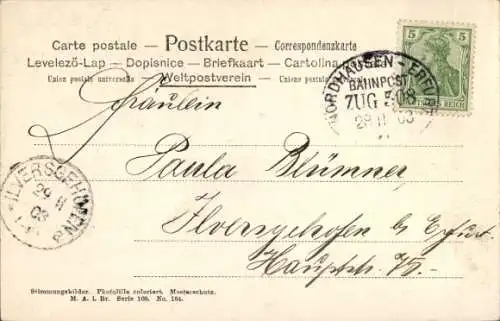 Carte postale — Postkarte — Correspondenzkarte
Levelező-Lap — Dopisnice — Briefkaart — Cartolina
Union postale universelle Weltpostverein Union postale
5 5
REICH
NORDHAUSEN - ERFURT
BAHNPOST
ZUG 308
29 11 03
Fräulein
Paula Blümner,
Ilversgehofen b/ Erfurt.
Hauptstr. 75.-
ILVERSGEHOFEN
29 11
03
Stimmungsbilder. Photolilla coloriert. Musterschutz.
M. A. i. Br. Serie 106. No. 164.